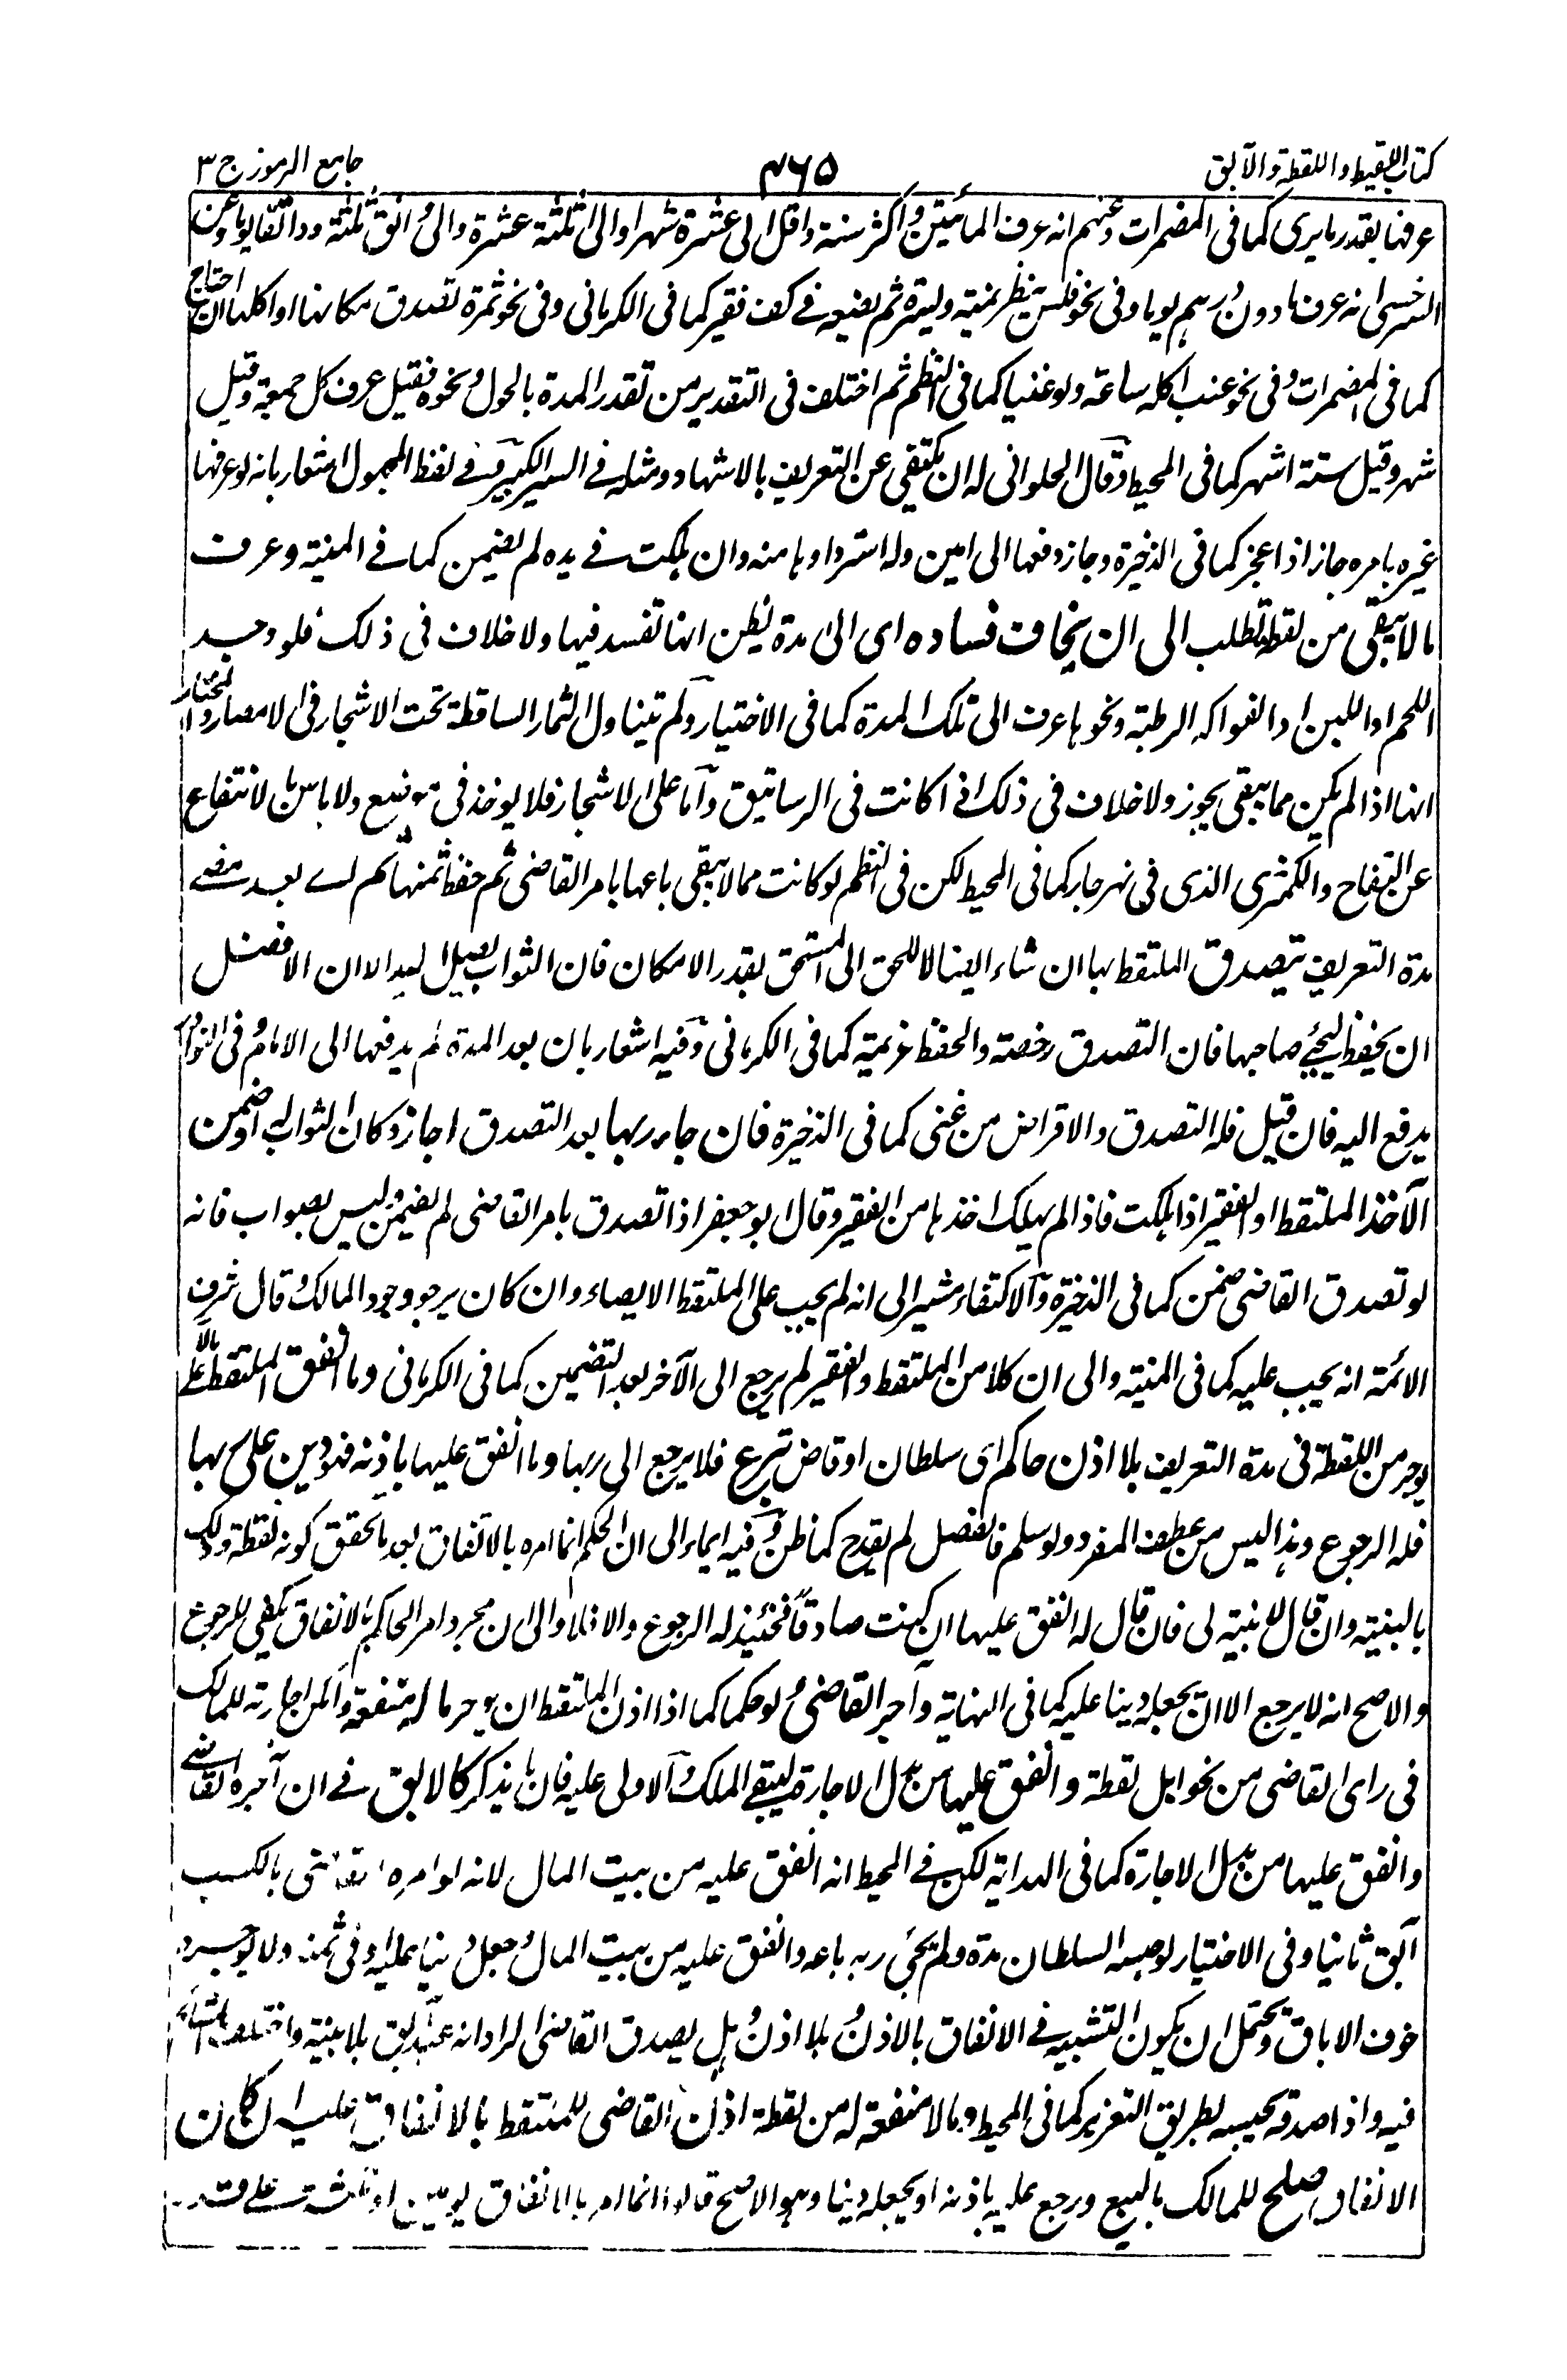 كتاب اللقيط واللقطة والآبق
٤٦٥
جامع الرموز ج ٣
عرفها بقدر ما يرى كما فى المضمرات وعنهم انه عرف المأتين واكثر سنة واقل الى عشرة شهرا والى ثلثة عشرة والى دانق ثلثة ودانقا يوما وعن
السرخسى انه عرف ما دون درهم يوما وفى نحو فلس ينظر يمنة ويسرة ثم يضعه فى كف فقير كما فى الكرمانى وفى نحو ثمرة تصدق مكانها او اكلها ان احتاج
كما فى المضمرات وفى نحو عنب اكله ساعة ولو غنيا كما فى النظم ثم اختلف فى التقدير من تقدر المدة بالحول ونحوه فقيل عرف كل جمعة وقيل
شهر وقيل ستة اشهر كما فى المحيط وقال الحلوانى له ان يكتفى عن التعريف بالاشهاد ومثله فى السير الكبير وفى لفظ المجهول اشعار بانه لو عرفها
غيره بامره جاز اذا عجز كما فى الذخيرة وجاز دفعها الى امين وله استردادها منه وان هلكت فى يده لم يضمن كما فى المنية وعرف
ما لا يبقى من لقطة تطلب الى ان يخاف فساده اى الى مدة يظن انها تفسد فيها ولا خلاف فى ذلك فلو وجد
اللحم او اللبن او الفواكه الرطبة ونحوها عرف الى تلك المدة كما فى الاختيار ولم تتناول الثمار الساقطة تحت الاشجار فى الامصار والمختار
انها اذا لم يكن مما يبقى يجوز ولا خلاف فى ذلك اذا كانت فى الرساتيق واما على الاشجار فلا يوخذ فى موضع ولا باس بالانتفاع
عن التفاح والكمثرى الذى فى نهر جار كما فى المحيط لكن فى النظم لو كانت مما لا يبقى باعها بامر القاضى ثم حفظ ثمنها ثم اے بعد مضى
مدة التعريف يتصدق الملتقط بها ان شاء ايصالا للحق الى المستحق بقدر الامكان فان الثواب يصل اليه الا ان الافضل
ان يحفظ ليجئ صاحبها فان التصدق رخصة والحفظ عزيمة كما فى الكرمانى وفيه اشعار بان بعد المدة لم يدفعها الى الامام وفى
يدفع اليه فان قيل فله التصدق والاقراض من غنى كما فى الذخيرة فان جاء ربها بعد التصدق اجاز وكان الثواب له او ضمن
الآخذ الملتقط او الفقير اذا هلكت فاذا لم يهلك اخذها من الفقير وقال ابو جعفر اذا تصدق بامر القاضى لم يضمن وليس بصواب فانه
لو تصدق القاضى ضمن كما فى الذخيرة والاكتفاء مشير الى انه لم يجب على الملتقط الايصاء وان كان يرجو وجود المالك وقال شرف
الائمة انه يجب عليه كما فى المنية والى ان كلا من الملتقط والفقير لم يرجع الى الآخر بعد التضمين كما فى الكرمانى وما انفق الملتقط على
يوجر من اللقطة فى مدة التعريف بلا اذن حاكم اى سلطان او قاض تبرع فلا يرجع الى ربها وما انفق عليها باذنه فهو دين على ربها
فله الرجوع وهذا ليس من عطف المفرد ولو سلم فالفصل لم يقدح كما ظن وفيه ايماء الى ان الحاكم انما امره بالانفاق بعد ما تحقق كونه لقطة وذلك
بالبينة وان قال لا بينة لى فان قال له انفق عليها ان كنت صادقا فحينئذ له الرجوع والا فلا والى ان مجرد امر الحاكم بالانفاق يكفى للرجوع
والاصح انه لا يرجع الا ان يجعله دينا عليه كما فى النهاية وآجر القاضى ولو حكما كما اذا اذن الملتقط ان يوجر ما له منفعة واكثر اجارته للمالك
فى راى القاضى من نحو ابل لقطة وانفق عليها من بدل الاجارة ليبقى الملك والاولى عليه فان ما يذكر كالابق فى ان آجره القاضى
وانفق عليها من بدل الاجارة كما فى الهداية لكن فى المحيط انه انفق عليه من بيت المال لانه لو امره القاضى بالكسب
آبق ثانيا وفى الاختيار لو حبسه السلطان مدة ولم يجئ ربه باعه وانفق عليه من بيت المال وجعل دينا عليه او فى ثمنه ولا يوجره
خوف الاباق ويحتمل ان يكون التشبيه فى الانفاق بالاذن وبلا اذن وهل يصدق القاضى الراد انه عبد آبق بلا بينة واختلف المشايخ
فيه واذا صدقه يحبسه بطريق التعزير كما فى المحيط وما لا منفعة له من لقطة اذن القاضى للملتقط بالانفاق عليه ان كان
الانفاق اصلح للمالك بالبيع ورجع عليه باذنه او يجعله دينا وهو الاصح قالوا انما امر بالانفاق يومين او ثلثة على قدر